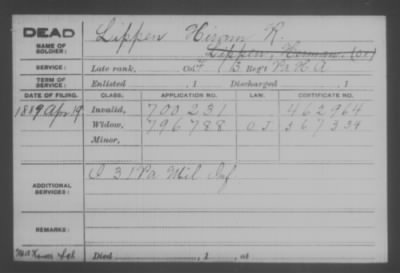 DEAD
NAME OF SOLDIER: Lippen Hiram R.
Lippen, Herman. (Or)
SERVICE: Late rank, Co. F 1 B Reg't Pa H A
TERM OF SERVICE: Enlisted , 1 Discharged , 1
DATE OF FILING. CLASS. APPLICATION NO. LAW. CERTIFICATE NO.
1889 Apr 19 Invalid, 700231 462964
Widow, 796788 567334
Minor,
ADDITIONAL SERVICES: 31 Pa Mil Inf
REMARKS:
Died , 1 , at